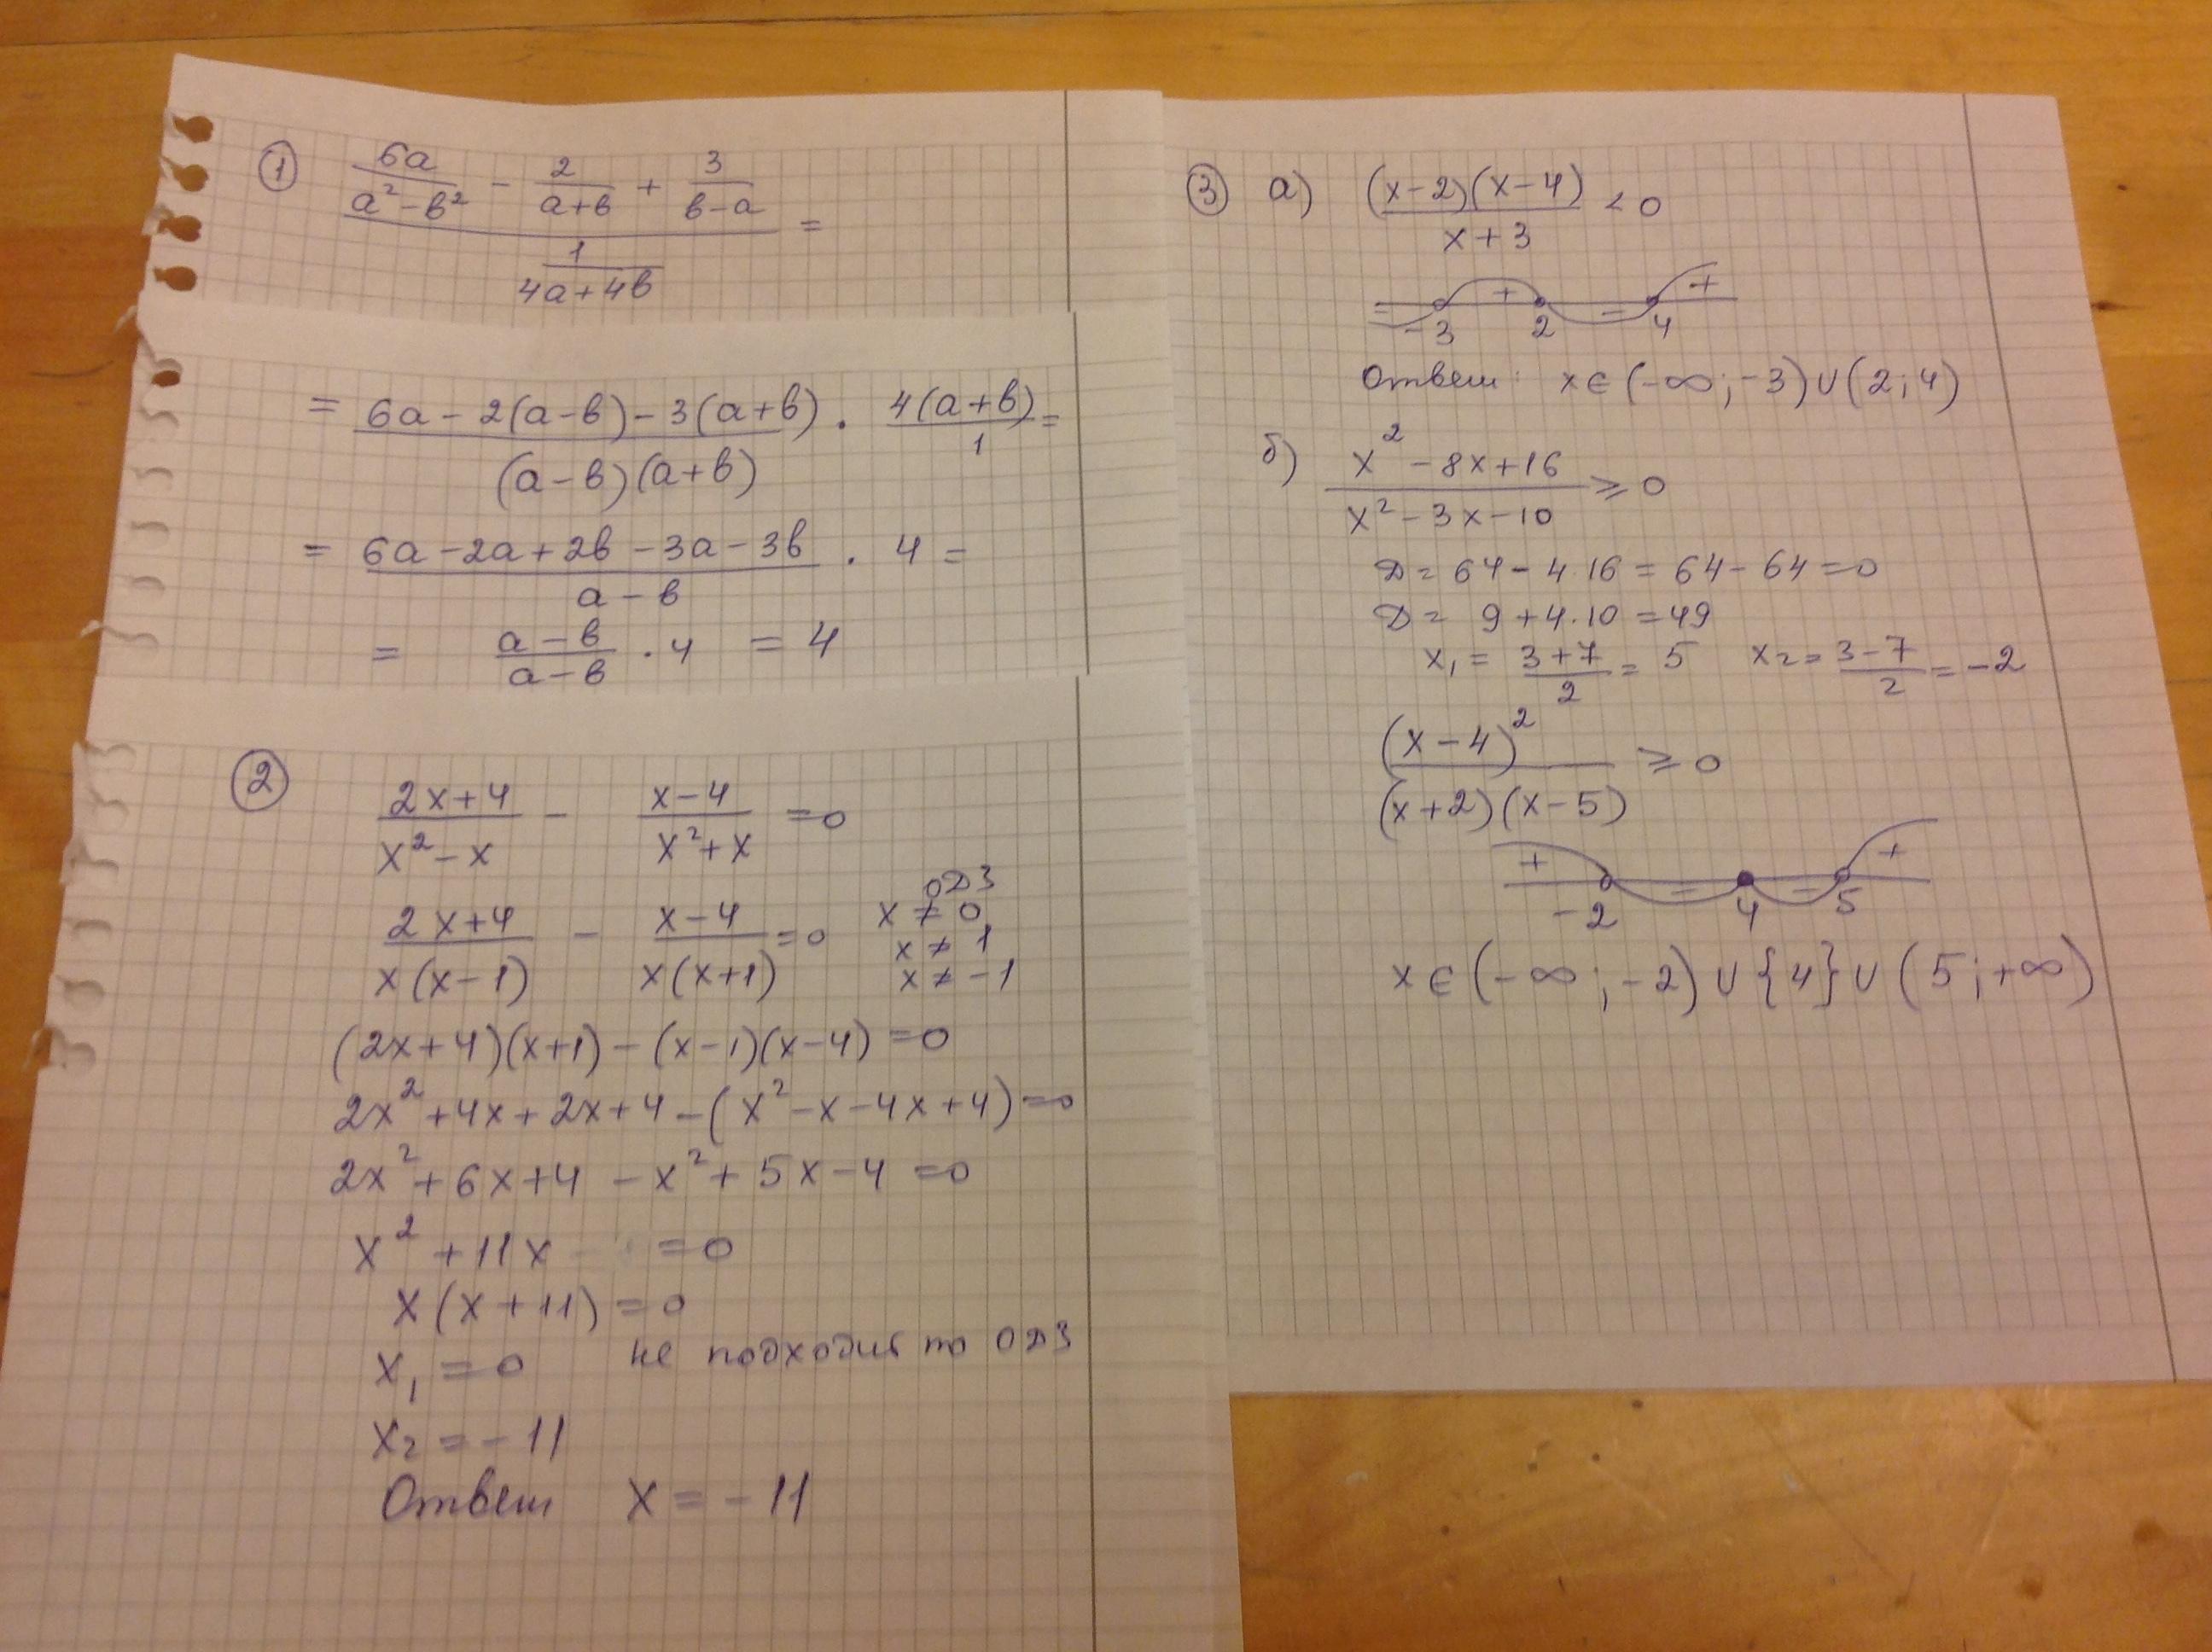 ① (6a/(a²-в²) - 2/(a+в) + 3/(в-a)) / (1/(4a+4в)) =
= (6a - 2(a-в) - 3(a+в))/((a-в)(a+в)) · 4(a+в)/1 =
= (6a - 2a + 2в - 3a - 3в)/(a-в) · 4 =
= (a-в)/(a-в) · 4 = 4
② (2x+4)/(x²-x) - (x-4)/(x²+x) = 0
ОДЗ
(2x+4)/(x(x-1)) - (x-4)/(x(x+1)) = 0 x ≠ 0
x ≠ 1
x ≠ -1
(2x+4)(x+1) - (x-1)(x-4) = 0
2x² + 4x + 2x + 4 - (x² - x - 4x + 4) = 0
2x² + 6x + 4 - x² + 5x - 4 = 0
x² + 11x = 0
x(x+11) = 0
x₁ = 0 не подходит по ОДЗ
x₂ = -11
Ответ x = -11
③ а) ((x-2)(x-4))/(x+3) < 0
- + - +
-3 2 4
Ответ: x ∈ (-∞; -3) ∪ (2; 4)
б) (x² - 8x + 16)/(x² - 3x - 10) ≥ 0
Д = 64 - 4·16 = 64 - 64 = 0
Д = 9 + 4·10 = 49
x₁ = (3+7)/2 = 5 x₂ = (3-7)/2 = -2
(x-4)²/((x+2)(x-5)) ≥ 0
+ - - +
-2 4 5
x ∈ (-∞; -2) ∪ {4} ∪ (5; +∞)